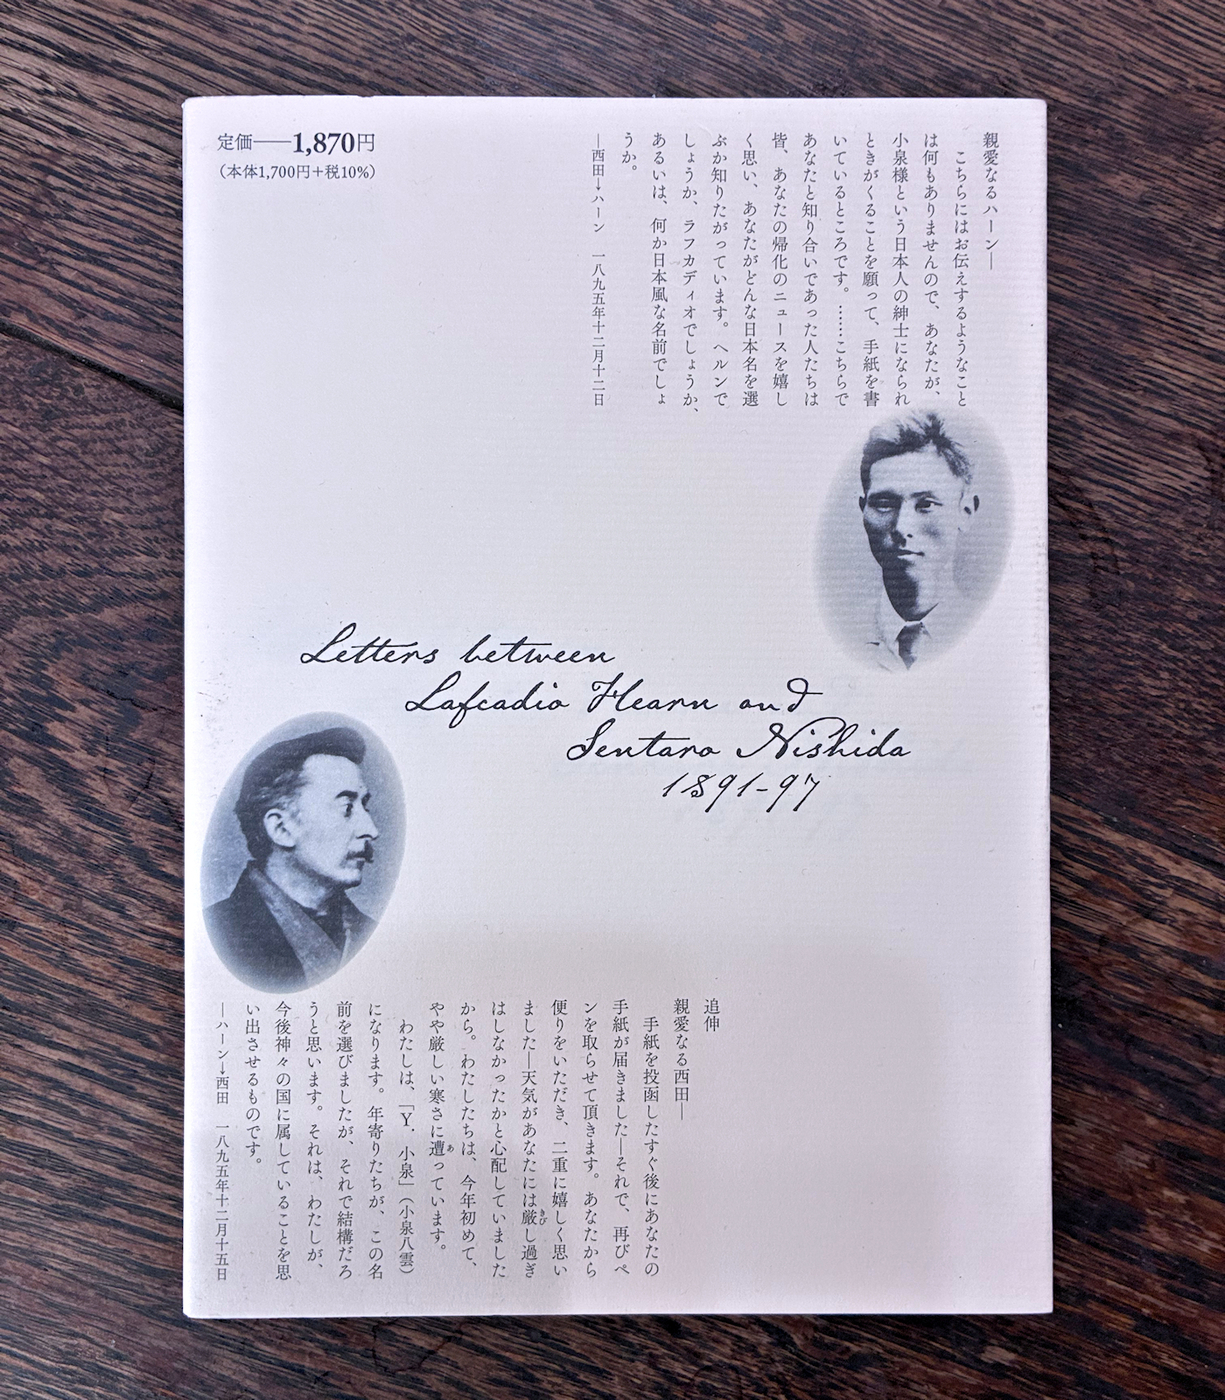 定価──1,870円
（本体1,700円＋税10%）
親愛なるハーン―
こちらにはお伝えするようなこと
は何もありませんので、あなたが、
小泉様という日本人の紳士になられ
ときがくることを願って、手紙を書
いているところです。……こちらで
あなたと知り合いであった人たちは
皆、あなたの帰化のニュースを嬉し
く思い、あなたがどんな日本名を選
ぶか知りたがっています。ヘルンで
しょうか、ラフカディオでしょうか、
あるいは、何か日本風な名前でしょ
うか。
―西田→ハーン　一八九五年十二月十二日
Letters between
Lafcadio Hearn and
Sentaro Nishida
1891-97
追伸
親愛なる西田―
手紙を投函したすぐ後にあなたの
手紙が届きました―それで、再びペ
ンを取らせて頂きます。あなたから
便りをいただき、二重に嬉しく思い
ました―天気があなたには厳し過ぎ
はしなかったかと心配していました
から。わたしたちは、今年初めて、
やや厳しい寒さに遭っています。
わたしは、「Y．小泉」（小泉八雲）
になります。年寄りたちが、この名
前を選びましたが、それで結構だろ
うと思います。それは、わたしが、
今後神々の国に属していることを思
い出させるものです。
―ハーン→西田　一八九五年十二月十五日